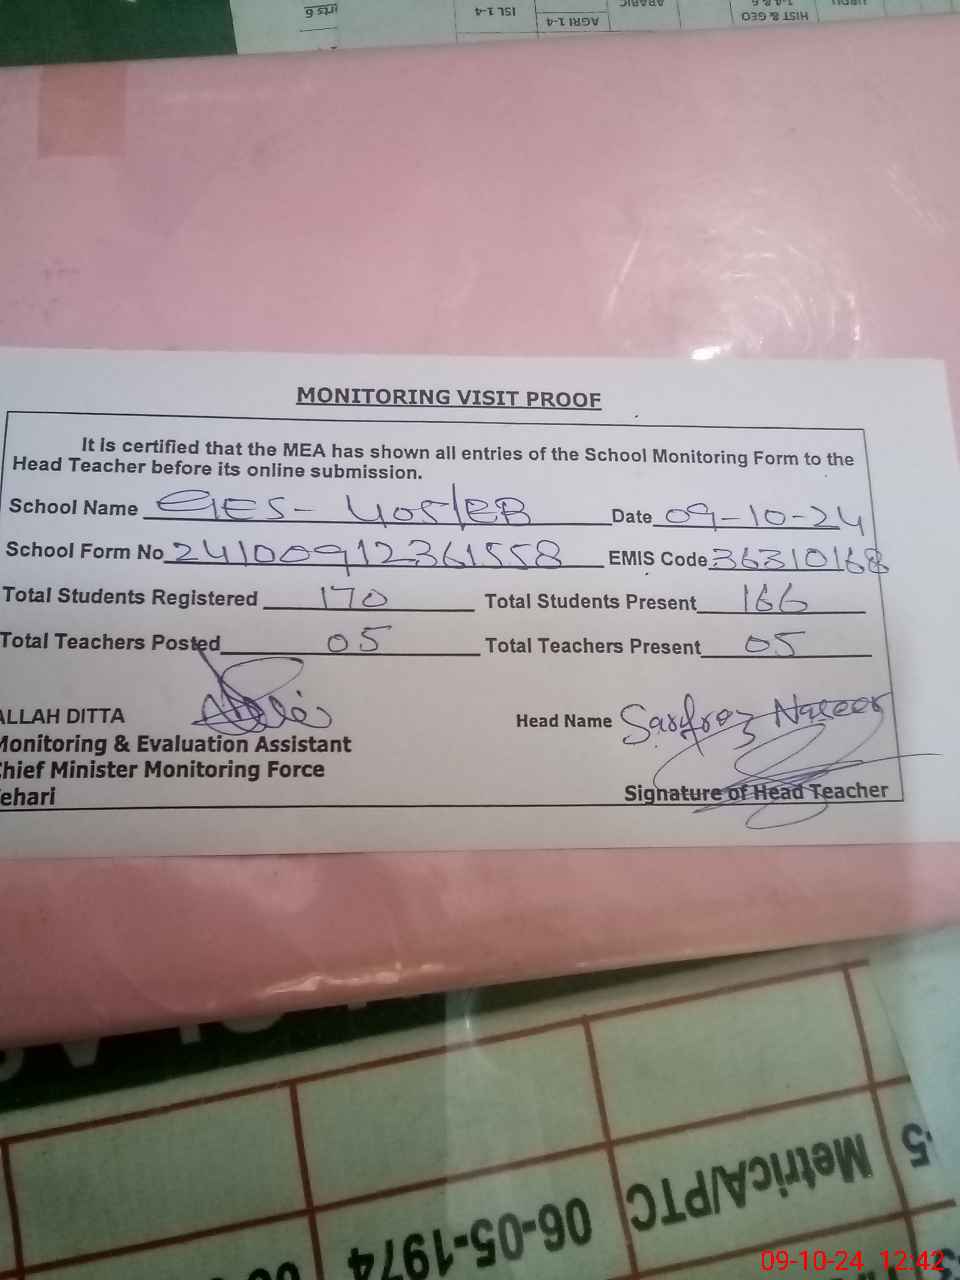 ISL 1-4
AGRI 1-4
HIST & GEO
MONITORING VISIT PROOF
It is certified that the MEA has shown all entries of the School Monitoring Form to the
Head Teacher before its online submission.
School Name GES- 405/EB Date 09-10-24
School Form No 241009912361558 EMIS Code 36310168
Total Students Registered 170 Total Students Present 166
Total Teachers Posted 05 Total Teachers Present 05
ALLAH DITTA Head Name Sarfraz Naseer
Monitoring & Evaluation Assistant
Chief Minister Monitoring Force
Vehari Signature of Head Teacher
06-05-1974 MetricA/PTC
09-10-24 12:42